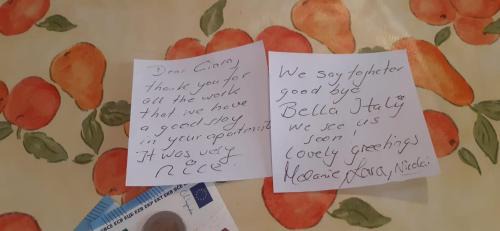 Dear Ciara,
thank you for
all the work
that we have
a good stay
in your apartment
It was very
nice.
We say togheter
good bye
Bella Italy
we see us
soon!
Lovely greetings
Melanie, Lara, Nicolai